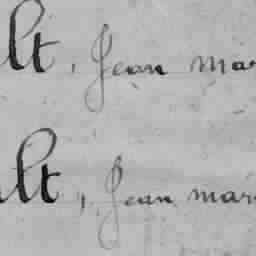 lt, Jean mar
ult, Jean mar